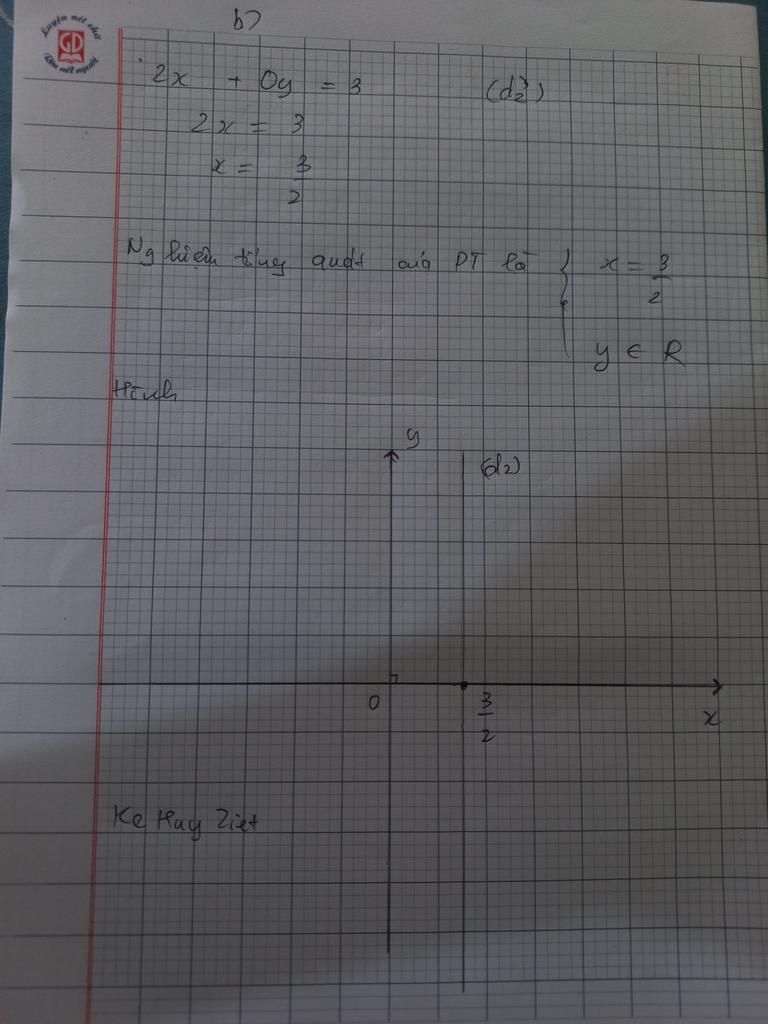 Luyện nét chữ
GD
Rèn nết người
b)
2x + 0y = 3 (d2)
2x = 3
x = 3/2
Nghiệm tổng quát của PT là { x = 3/2
y ∈ R
Hình
y
(d2)
O
3/2
x